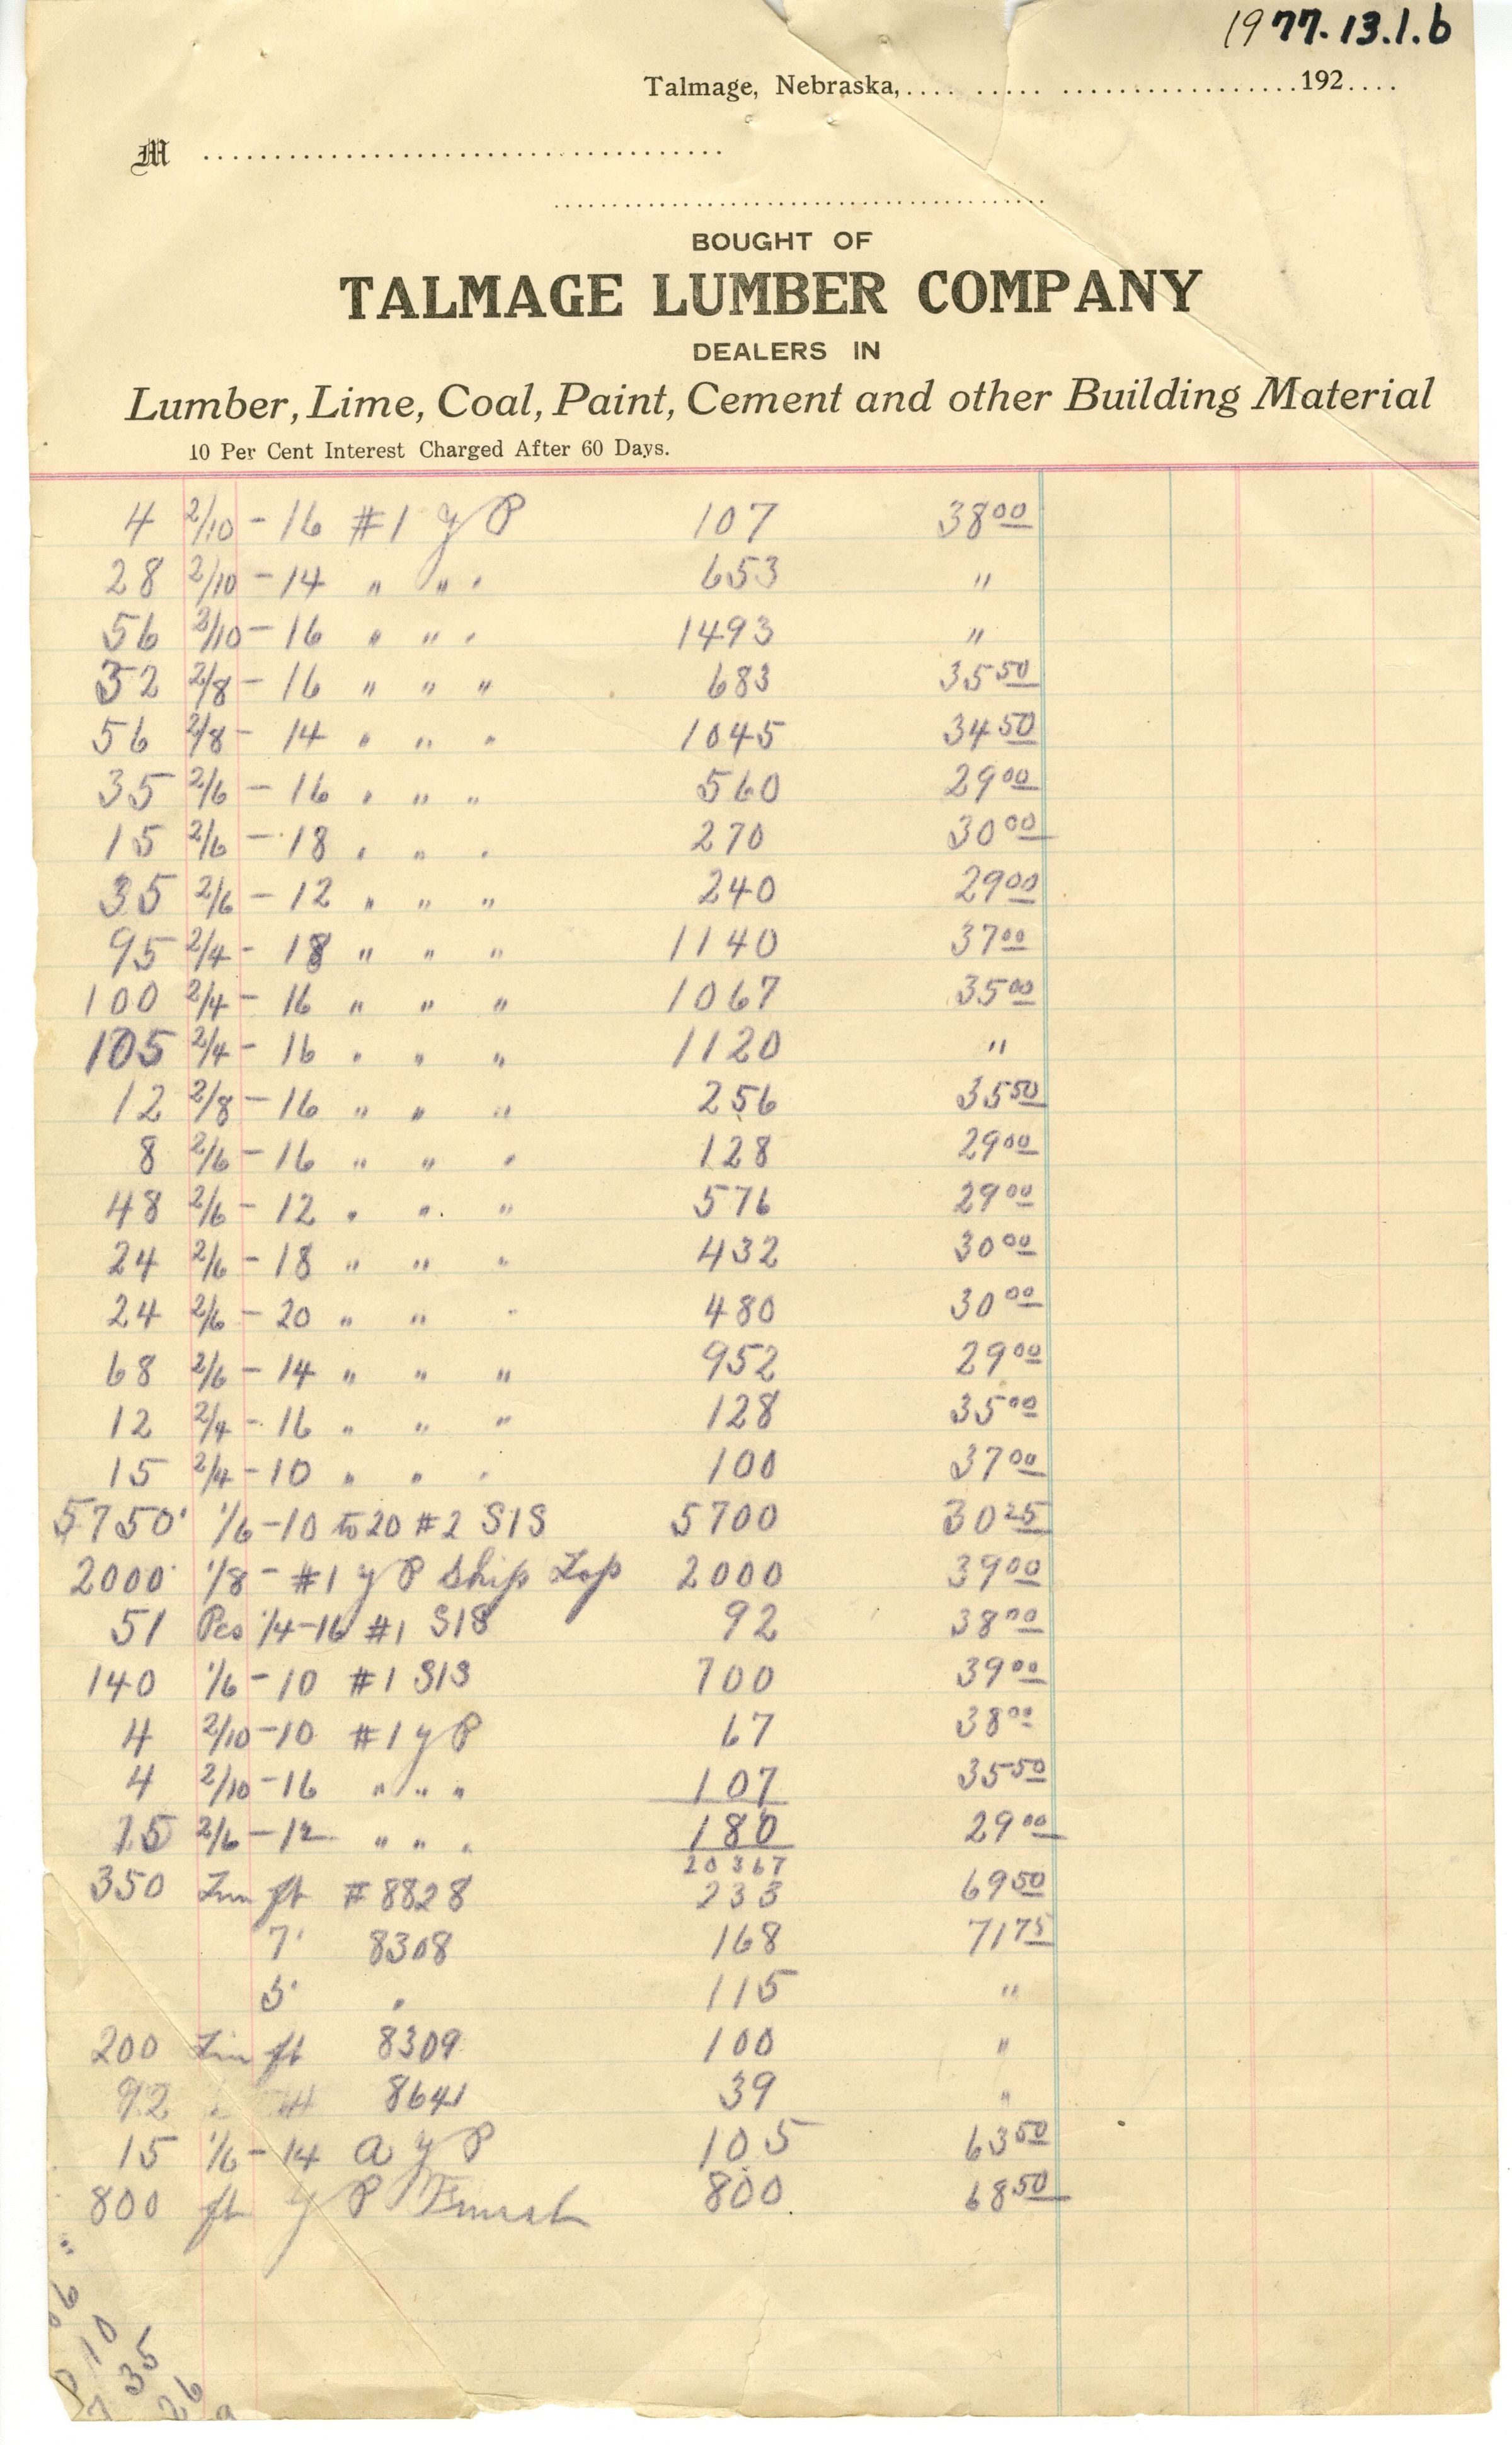 1977.13.1.b
Talmage, Nebraska, 192
M
BOUGHT OF
TALMAGE LUMBER COMPANY
DEALERS IN
Lumber, Lime, Coal, Paint, Cement and other Building Material
10 Per Cent Interest Charged After 60 Days.
4 2/10 - 16 #1 y P 107 38 00
28 2/10 - 14 " " " 653 "
56 2/10 - 16 " " " 1493 "
32 2/8 - 16 " " " 683 35 50
56 2/8 - 14 " " " 1045 34 50
35 2/6 - 16 " " " 560 29 00
15 2/6 - 18 " " " 270 30 00
35 2/6 - 12 " " " 240 29 00
95 2/4 - 18 " " " 1140 37 00
100 2/4 - 16 " " " 1067 35 00
105 2/4 - 16 " " " 1120 "
12 2/8 - 16 " " " 256 35 50
8 2/6 - 16 " " " 128 29 00
48 2/6 - 12 " " " 576 29 00
24 2/6 - 18 " " " 432 30 00
24 2/6 - 20 " " " 480 30 00
68 2/6 - 14 " " " 952 29 00
12 2/4 - 16 " " " 128 35 00
15 2/4 - 10 " " " 100 37 00
5750' 1/6 - 10 to 20 #2 S1S 5700 30 25
2000' 1/8 - #1 y P Ship Lap 2000 39 00
51 Pcs 1/4 - 16 #1 S1S 92 38 00
140 1/6 - 10 #1 S1S 700 39 00
4 2/10 - 10 #1 y P 67 38 00
4 2/10 - 16 " " " 107 35 50
15 2/6 - 12 " " " 180 29 00
20367
350 Lin ft #8828 233 69 50
7' 8308 168 71 75
5' " 115 "
200 Lin ft 8309 100 "
92 " " 8641 39 "
15 1/6 - 14 a y P 105 63 50
800 ft y P Finish 800 68 50
10
35
26